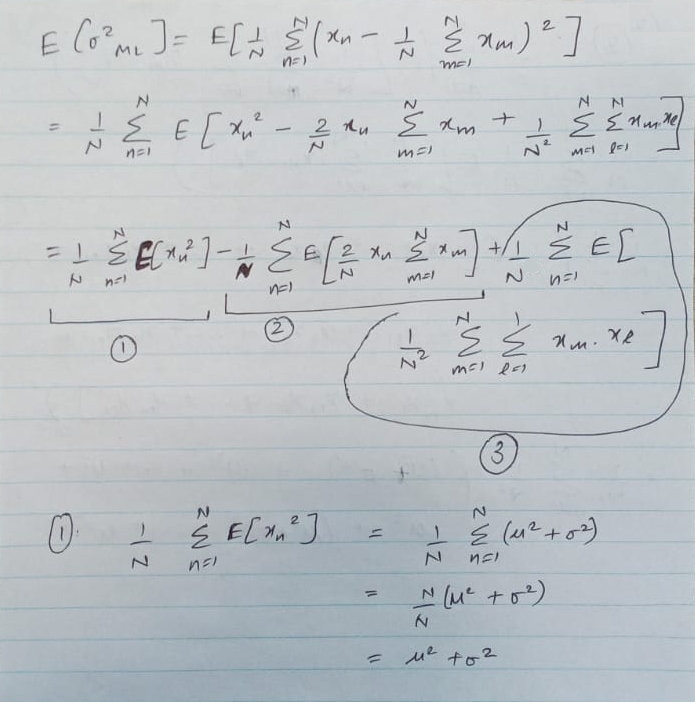 E[σ²ML] = E[1/N Σₙ₌₁ᴺ (xₙ - 1/N Σₘ₌₁ᴺ xₘ)²]
= 1/N Σₙ₌₁ᴺ E[xₙ² - 2/N xₙ Σₘ₌₁ᴺ xₘ + 1/N² Σₘ₌₁ᴺ Σₗ₌₁ᴺ xₘ.xₗ]
= 1/N Σₙ₌₁ᴺ E[xₙ²] - 1/N Σₙ₌₁ᴺ E[2/N xₙ Σₘ₌₁ᴺ xₘ] + 1/N Σₙ₌₁ᴺ E[
① ②
1/N² Σₘ₌₁ᴺ Σₗ₌₁¹ xₘ. xₗ]
③
①. 1/N Σₙ₌₁ᴺ E[xₙ²] = 1/N Σₙ₌₁ᴺ (μ² + σ²)
= N/N (μ² + σ²)
= μ² + σ²